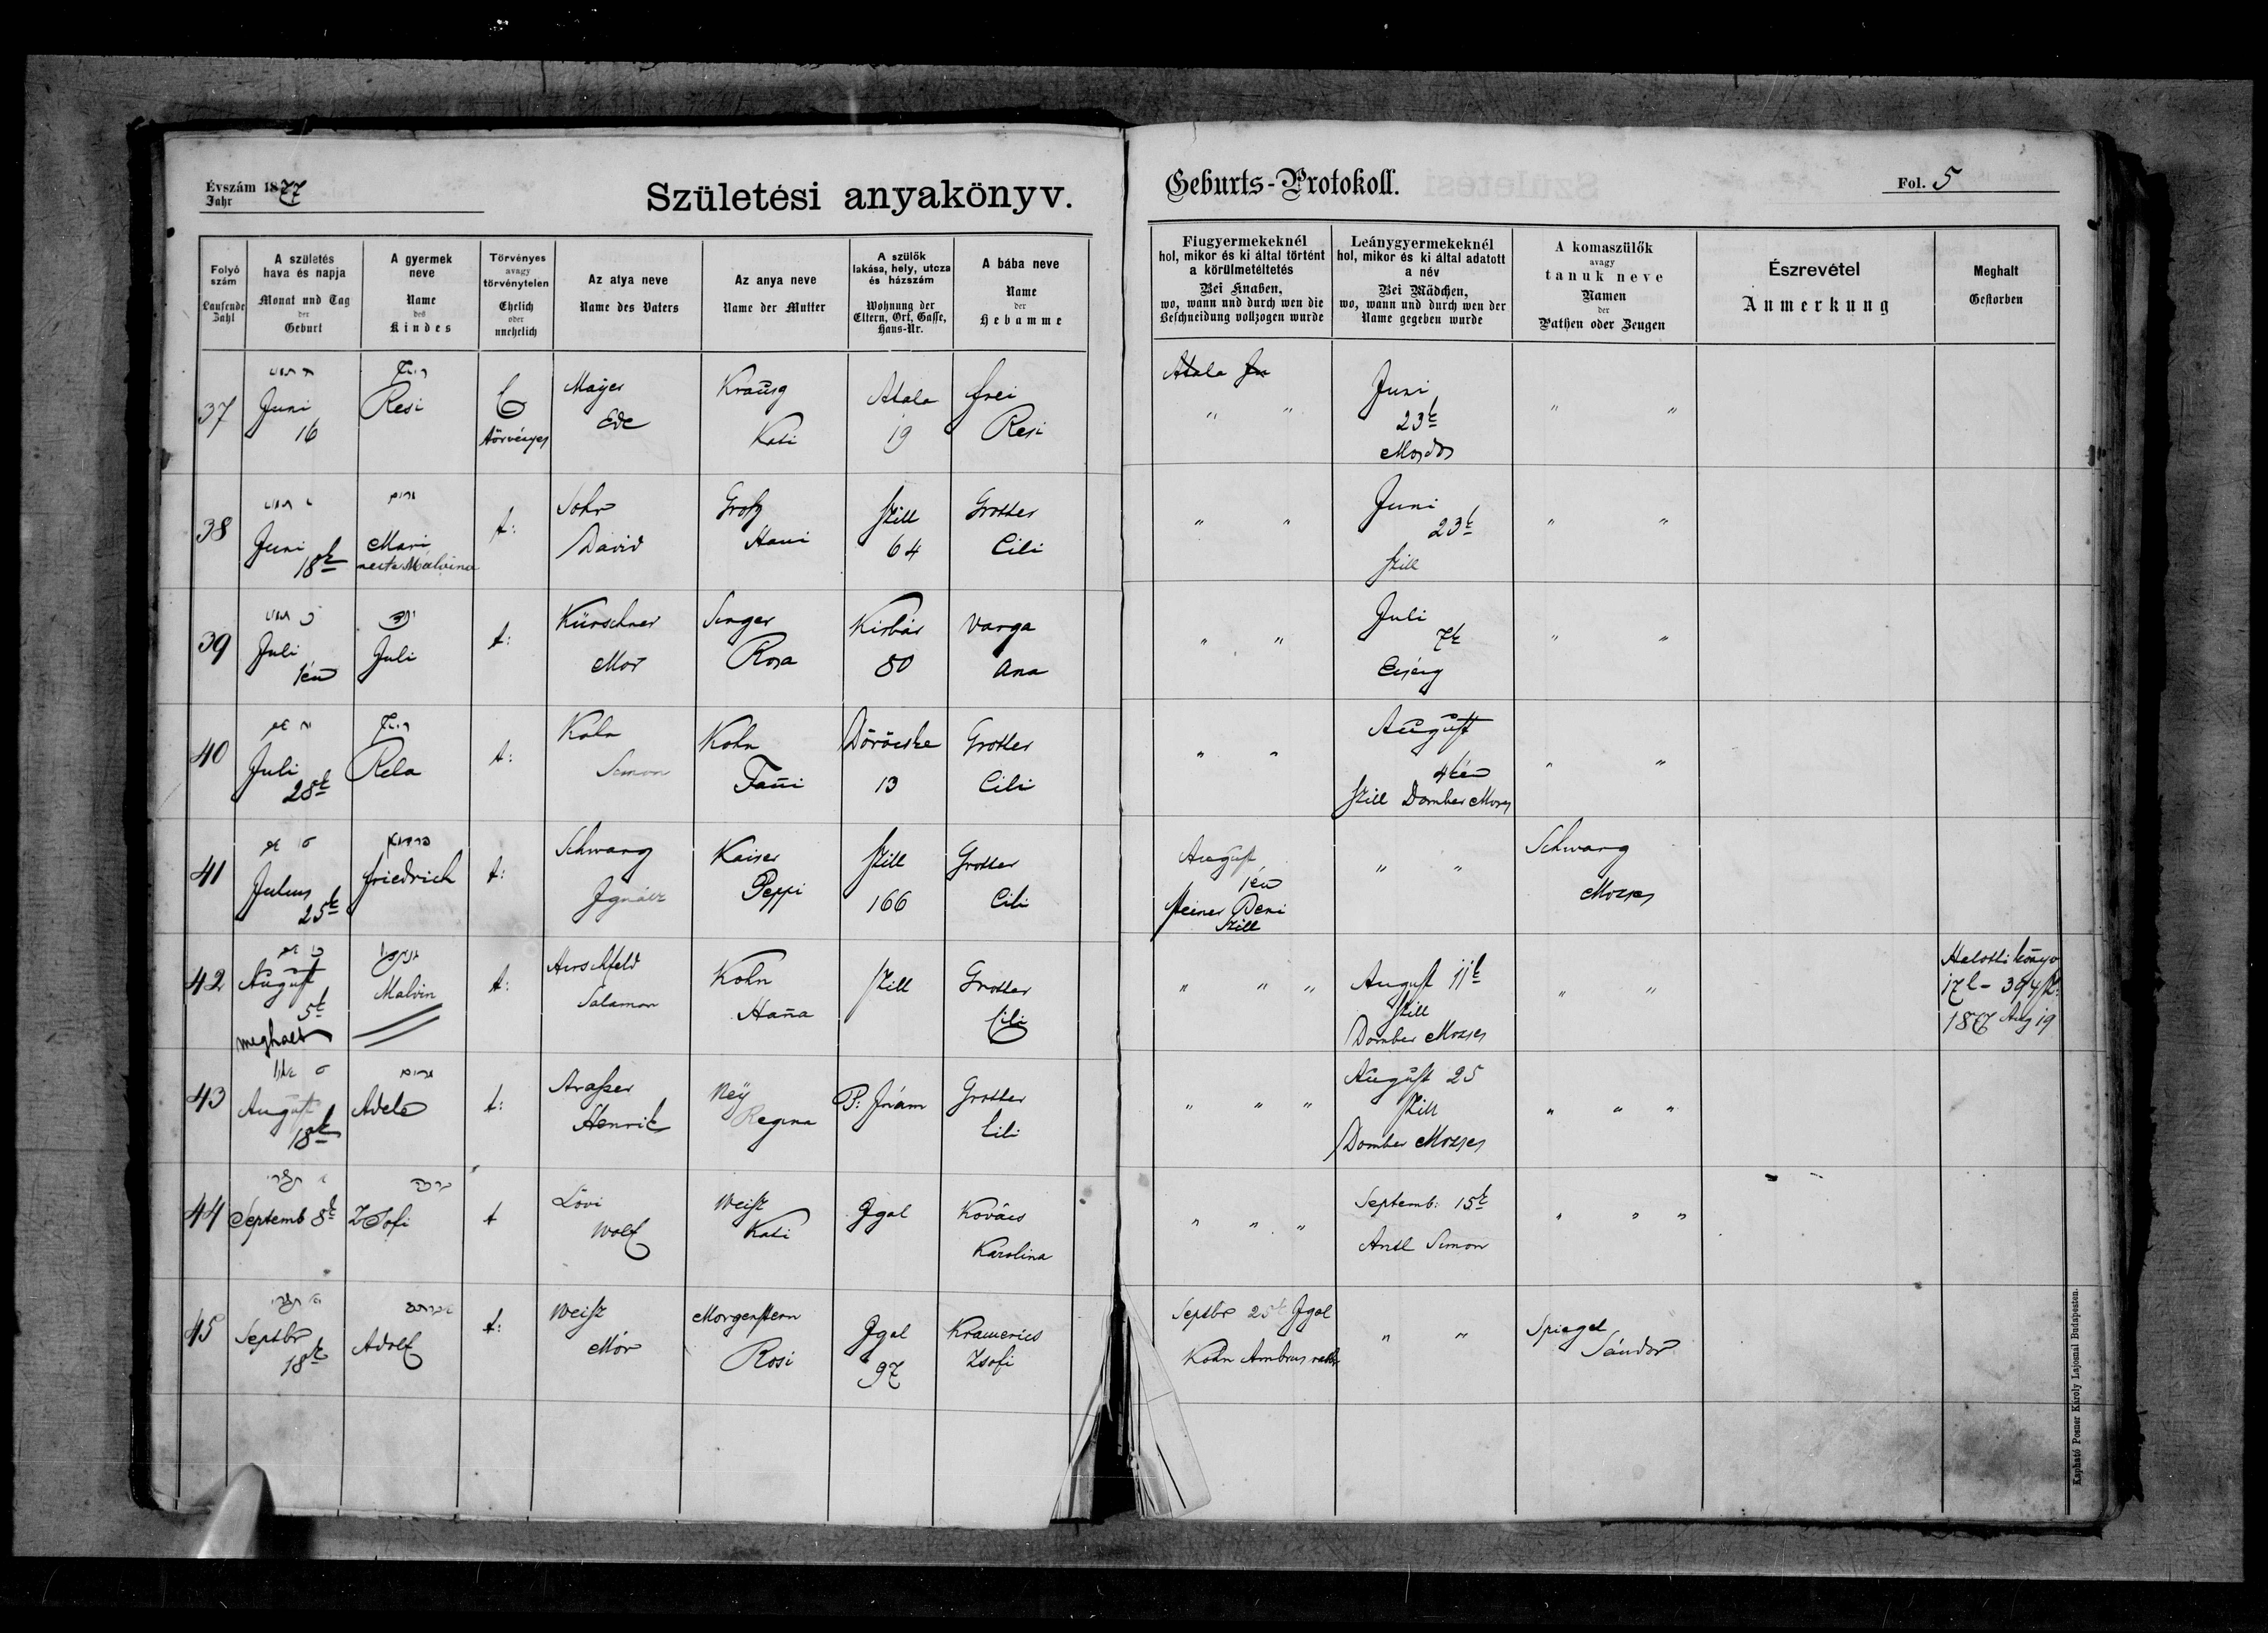 Évszám 1877
Jahr
Születési anyakönyv.
Geburts-Protokoll.
Fol. 5
Folyó szám
Laufende Zahl
A születés hava és napja
Monat und Tag der Geburt
A gyermek neve
Name des Kindes
Törvényes avagy törvénytelen
Ehelich oder unehelich
Az atya neve
Name des Vaters
Az anya neve
Name der Mutter
A szülők lakása, hely, utcza és házszám
Wohnung der Eltern, Ort, Gasse, Haus-Nr.
A bába neve
Name der Hebamme
Fiugyermekeknél hol, mikor és ki által történt a körülmetéltetés
Bei Knaben, wo, wann und durch wen die Beschneidung vollzogen wurde
Leánygyermekeknél hol, mikor és ki által adatott a név
Bei Mädchen, wo, wann und durch wen der Name gegeben wurde
A komaszülők avagy tanuk neve
Namen der Pathen oder Zeugen
Észrevétel
Anmerkung
Meghalt
Gestorben
37 Juni 16 Resi törvényes Mayer Ede Krausz Kati Atala 19 Frei Resi
Atala " " Juni 23k Mosdos " "
38 Juni 18k Mari t: Sohr David Grosz Hani Szill 64 Grotter Cili
" " Juni 23k Szill " "
39 Juli 1én Juli t: Kürschner Mór Singer Rosa Kisbár 80 Varga Ana
" " Juli 7k " "
40 Juli 28k Rela t: Kohn Simon Kohn Fañi Döröcske 13 Grotter Cili
" " August 4kén Szill Domber Mozes " "
41 Julius 25k Friedrich t: Schwarz Ignátz Kaiser Peppi Szill 166 Grotter Cili
August 1én Steiner Beni Szill " " Schwarz Mozses
42 August 5k meghalt Malvin t: Hirschfeld Salamon Kohn Haña Szill Grotter Cili
" " " August 11k Szill Domber Mozses " " Halotti könyv 17 l - 394 sz: 1877 Aug 19
43 August 18k Adele t: Henrik Ney Regina Grotter Cili
" " " August 25 Szill Domber Mozses " " "
44 Septemb 8k Zsofi t Lövi Wolf Weisz Kati Igal Kovács Karolina
" " " Septemb: 15k Antl Simon " " "
45 Septbr 18k Adolf t: Weisz Mór Morgenstern Rosi Igal 97 Kramerics Zsofi
Septbr 25k Igal Kohn Ambrus " " Spiegel Sándor
Kapható Posner Károly Lajosnál Budapesten.